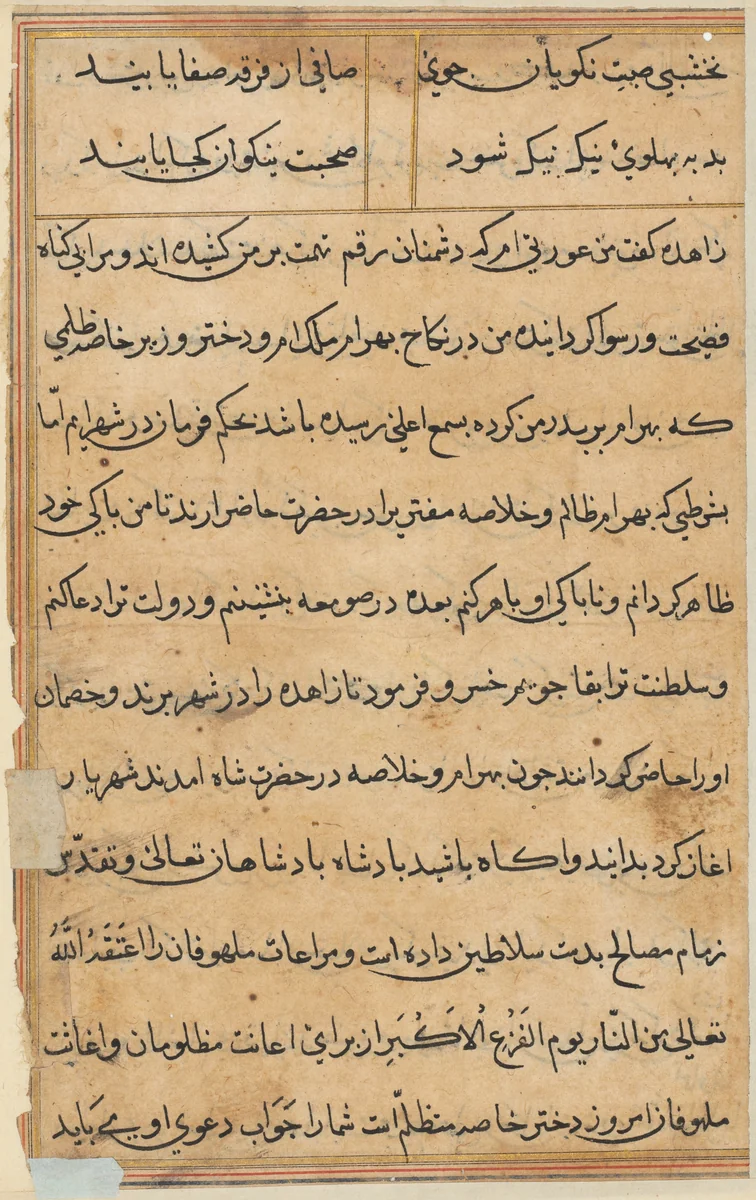 نخشبی صحبت نکویان جوی صافی از فرقد صفا یابند
بد به پهلوی نیک نیک شود صحبت نیکوان کجا یابند
زاهده کفت من عورتی ام که دشمنان رقم تهمت بر من کشیده اند و مرا بی کناه
فضیحت و رسوا کردانیده من در نکاح بهرام ملک ام و دختر وزیر خاصه ظلمی
که بهرام بر پدر من کرده بسمع اعلی رسیده باشد بحکم فرمان در شهر ایم امّا
بشرطی که بهرام ظالم و خلاصه مفتری را در حضرت حاضر ارند تا من باکی خود
ظاهر کردانم و ناباکی او باهر کنم بعده در صومعه بنشینم و دولت ترا دعا کنم
و سلطنت ترا بقا جویم خسرو فرمود تا زاهده را در شهر برند و خصمان
او را حاضر کردانند جون بهرام و خلاصه در حضرت شاه امدند شهریار
اغاز کرد بدانید و اکاه باشید بادشاه بادشاهان تعالی و تقدّس
زمام مصالح بدست سلاطین داده است و مراعات ملهوفان را اعتقد اللّٰه
تعالی من النّار یوم الفَزَعِ الاَکْبَرِ از برای اعانت مظلومان و اغاثت
ملهوفان امروز دختر خاصه متظلّم است شما را جَوَاب دعوی او می بَاید